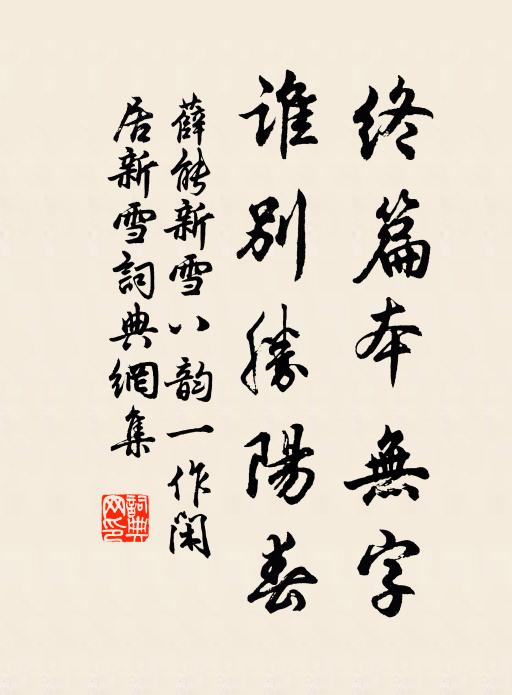 終篇本無字
誰別勝陽春
薛能新雪八韵一作閑
居新雪詞典網集
詞典
网印